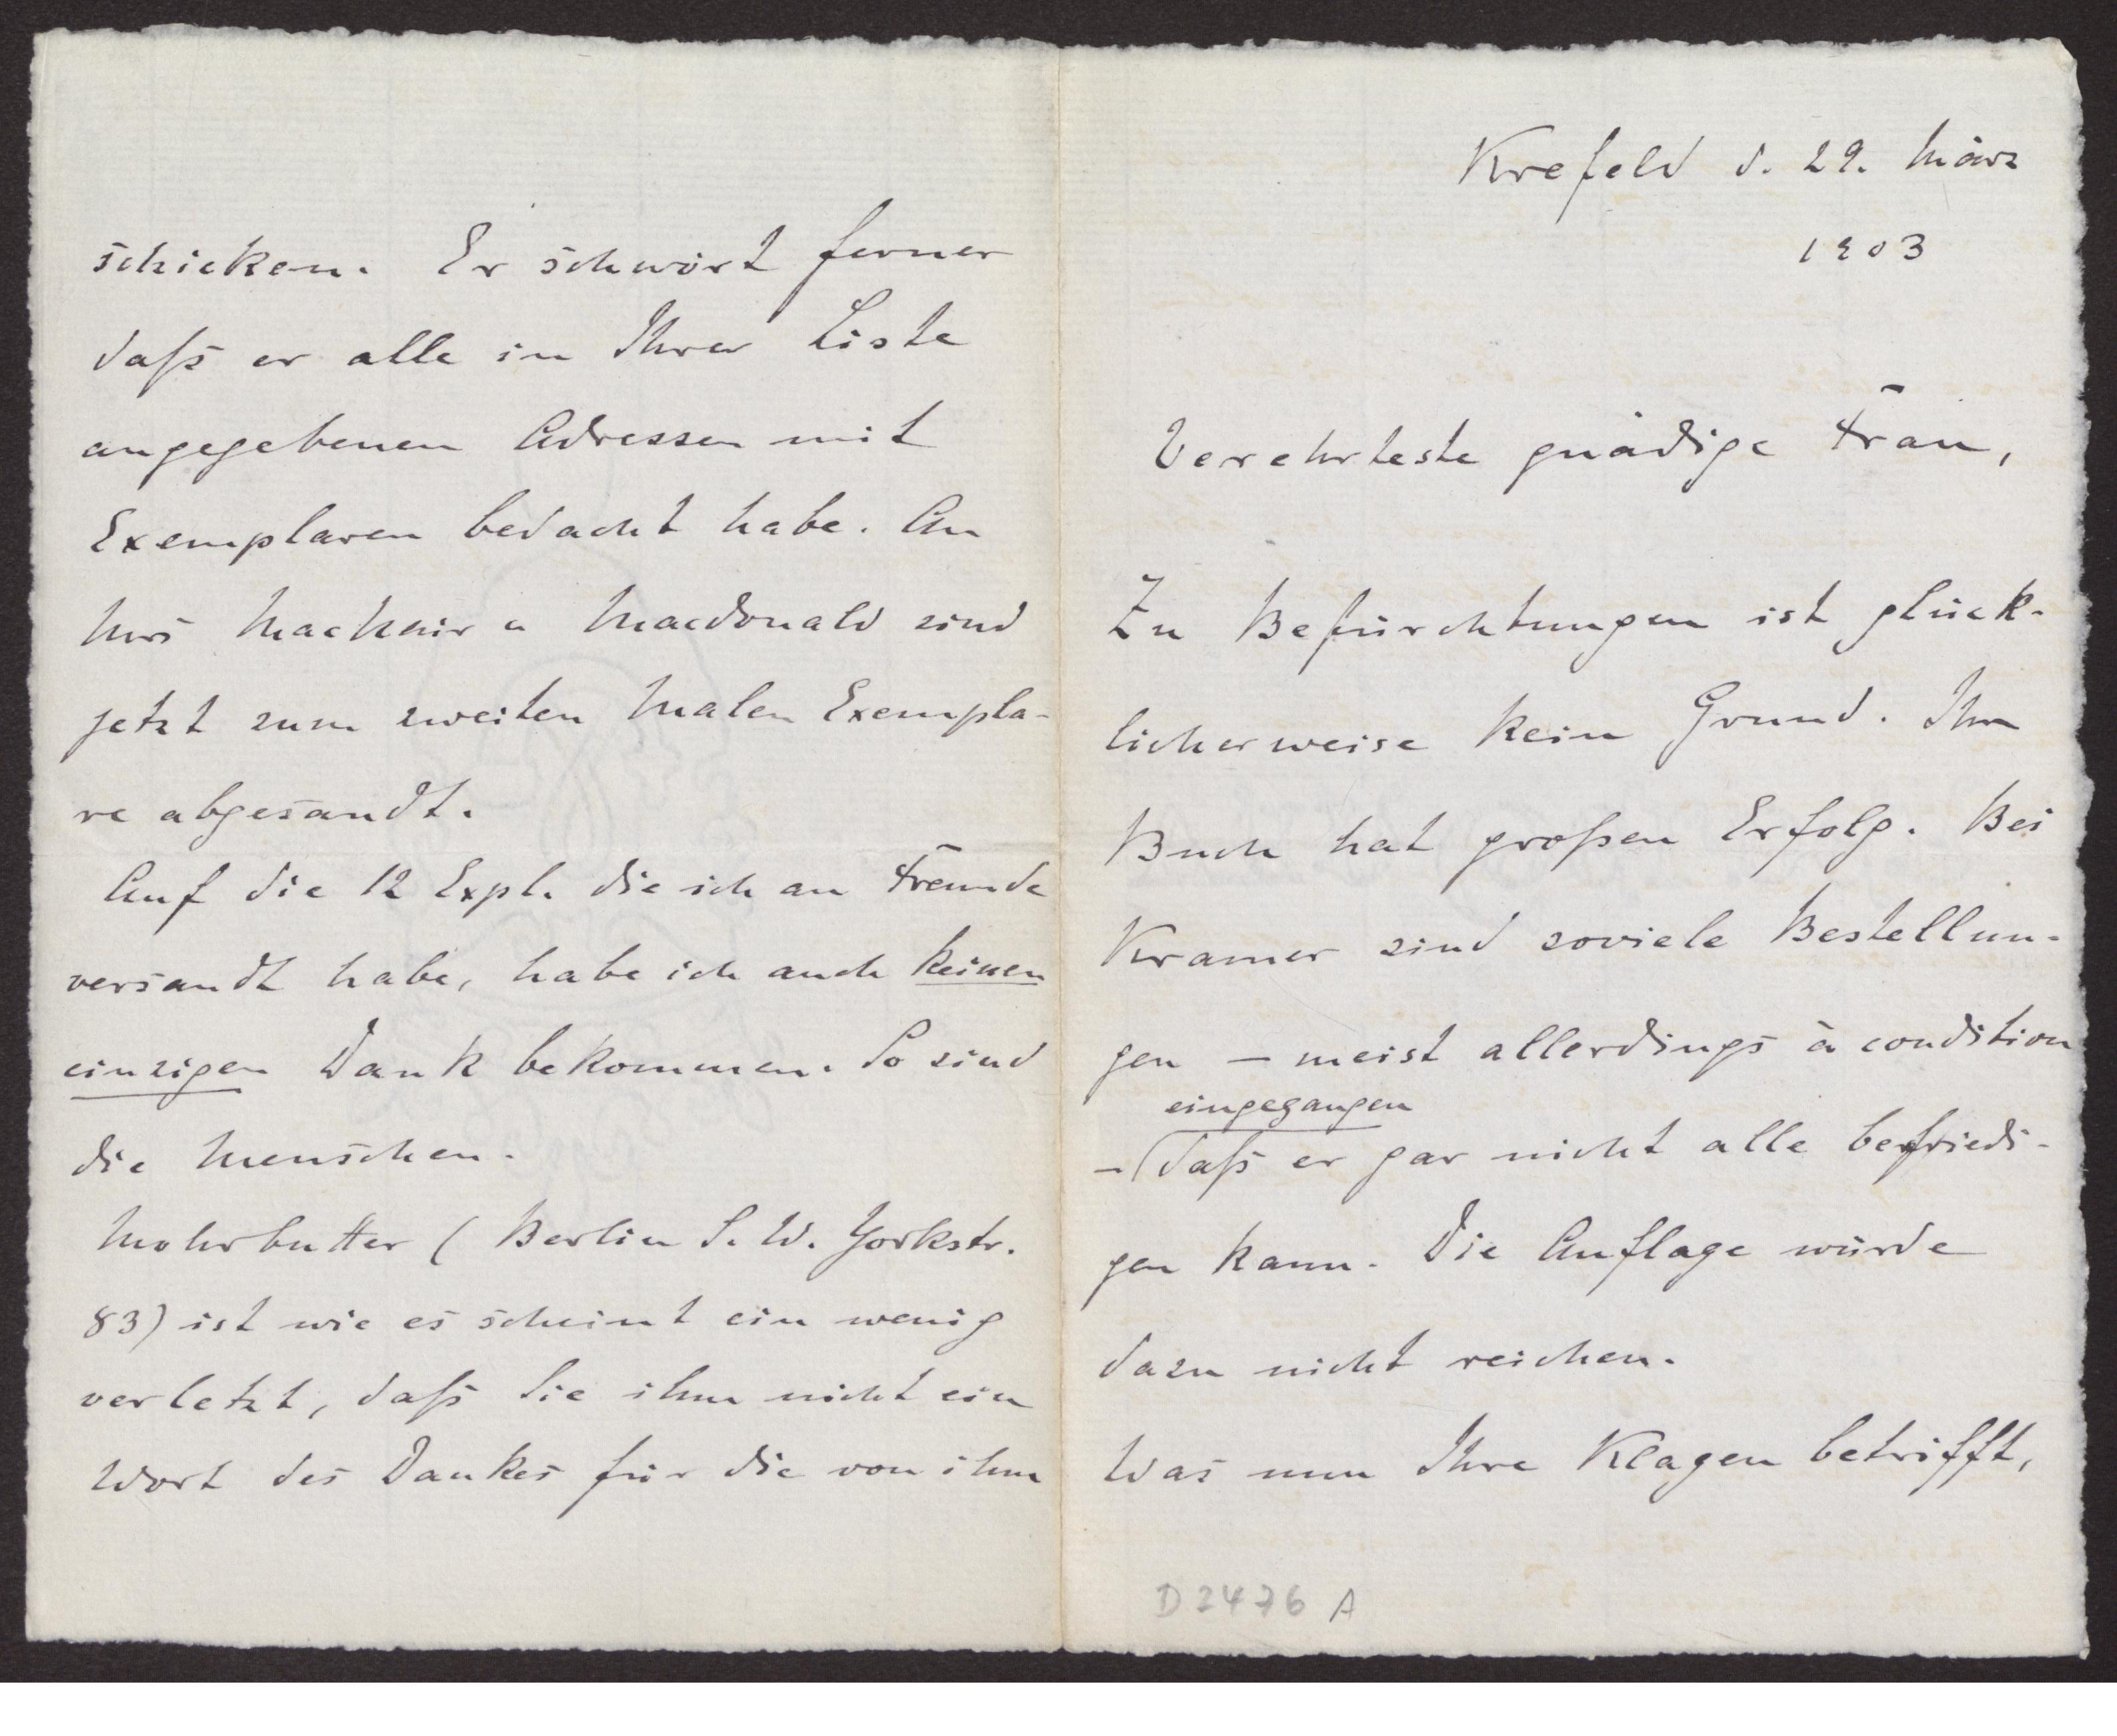 Krefeld d. 29. März
1903
Verehrteste gnädige Frau,
Zu Befürchtungen ist glück-
licherweise kein Grund. Ihr
Buch hat großen Erfolg. Bei
Kramer sind soviele Bestellun-
gen – meist allerdings à condition
eingegangen
– daß er gar nicht alle befriedi-
gen kann. Die Auflage würde
dazu nicht reichen.
Was nun Ihre Klagen betrifft,
D 2476 A
schicken. Er schwört ferner
daß er alle in Ihrer Liste
angegebenen Adressen mit
Exemplaren bedacht habe. An
Mrs u Macdonald sind
jetzt zum zweiten Malen Exempla-
re abgesandt.
Auf die 12 Expl. die ich an Freunde
versandt habe, habe ich auch keinen
einzigen Dank bekommen. So sind
die Menschen.
Mohrbutter (Berlin S. W. Yorkstr.
83) ist wie es scheint ein wenig
verletzt, daß Sie ihm nicht ein
Wort des Dankes für die von ihm